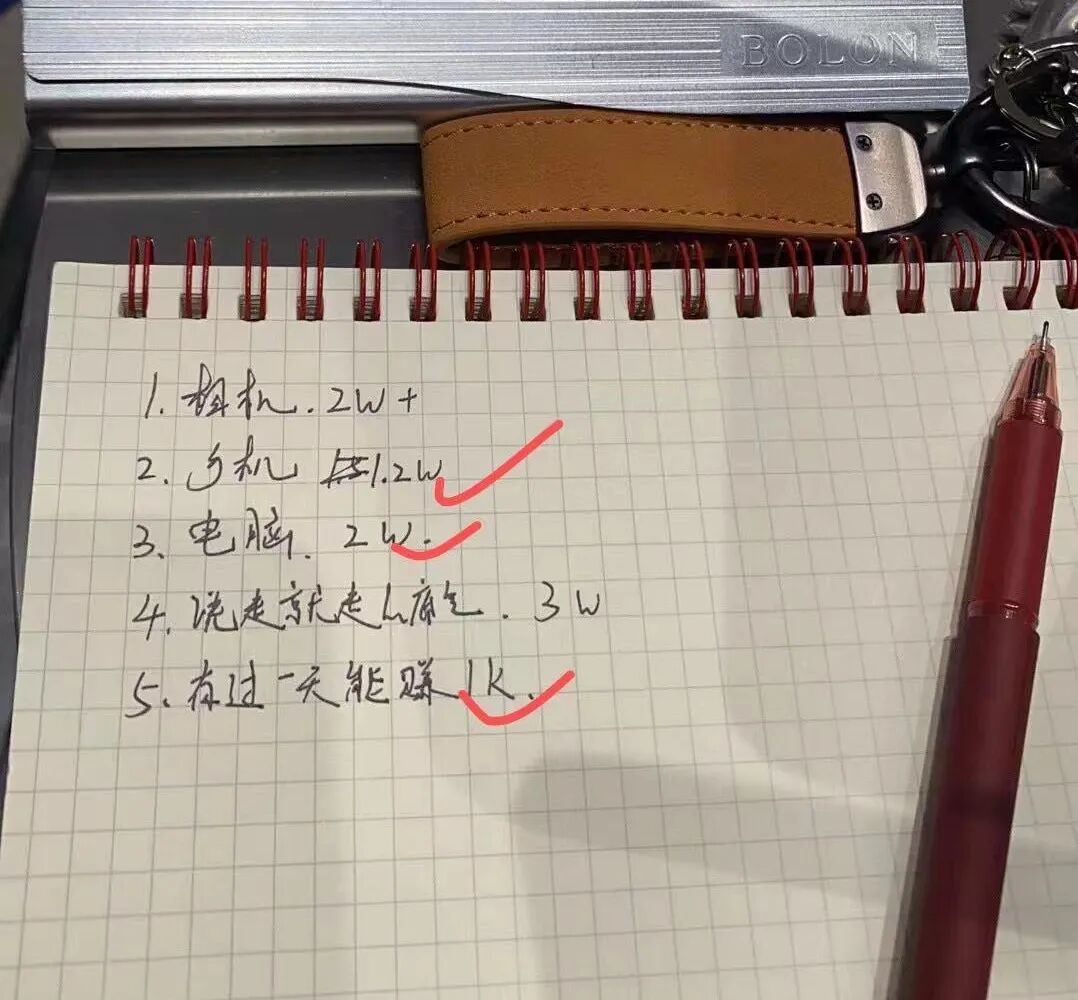 BOLON
1. 相机. 2W+
2. 手机 1.2W
3. 电脑. 2W.
4. 说走就走的底气. 3W
5. 有过一天能赚1K.